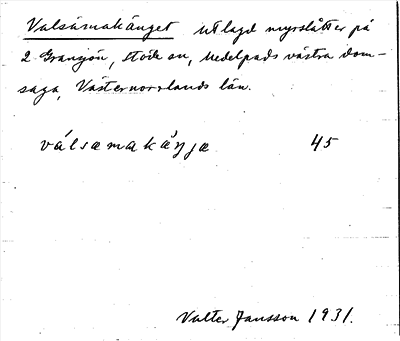 Valsämakänget utlagd myrslåtter på
2 Gransjön, Stöde sn, Medelpads västra dom-
saga, Västernorrlands län.
válsamakä̀ŋja 45
Valter Jansson 1931.